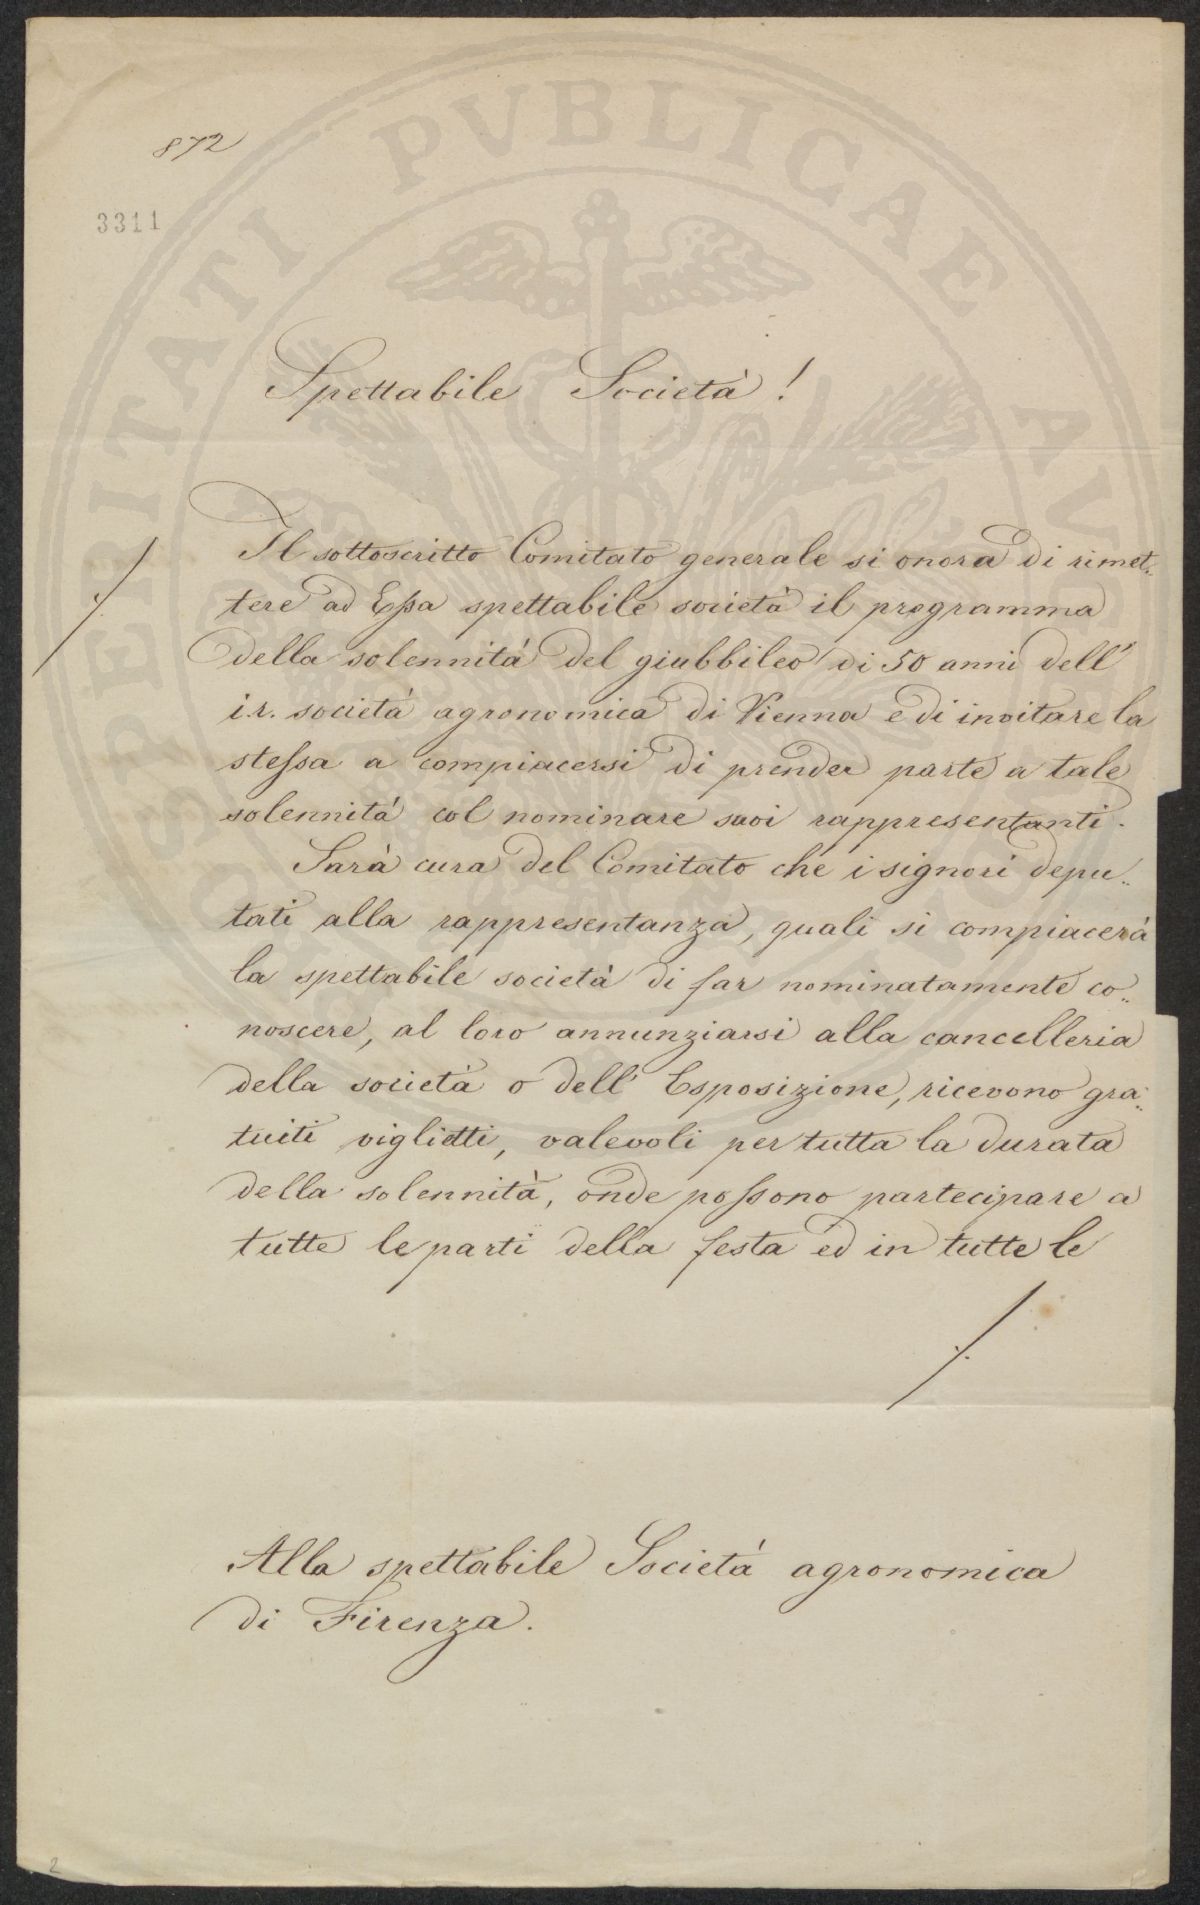 872
3311
Spettabile Società!
Il sottoscritto Comitato generale si onora di rimet-
tere ad Essa spettabile società il programma
della solennità del giubbileo di 50 anni dell'
i.r. società agronomica di Vienna e di invitare la
stessa a compiacersi di prender parte a tale
solennità col nominare suoi rappresentanti.
Sarà cura del Comitato che i signori depu-
tati alla rappresentanza, quali si compiacerà
la spettabile società di far nominatamente co-
noscere, al loro annunziarsi alla cancelleria
della società o dell' Esposizione, ricevono gra-
tuiti viglietti, valevoli per tutta la durata
della solennità, onde possono partecipare a
tutte le parti della festa ed in tutte le
Alla spettabile Società agronomica
di Firenza.
2